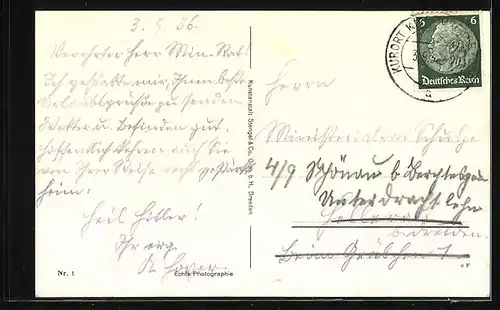 3. 9. 36.
Verehrter Herr Min.-Rat!
Ich gestatte mir, Ihnen beste
Urlaubsgrüsse zu senden
Wetter u. Befinden gut,
hoffentlich kehren auch Sie
von Ihrer Reise recht gestärkt
heim.
Heil Hitler!
Ihr erg.
Nr. 1
Echte Photographie
Kunstanstalt Stengel & Co., G.m.b.H., Dresden
KURORT
6
Deutsches Reich
Herrn
Ministerialrat Schulze
4/9 Schönau b Berchtesgaden
Unterdrachtlehn
Hellerau
b. Dresden.
Beim Gräbchen 1